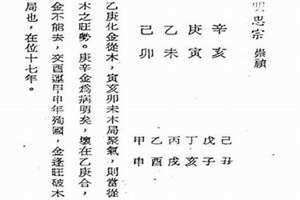 明思宗 崇禎
辛亥
庚寅
乙未
己卯
己丑
戊子
丁亥
丙戌
乙酉
甲申
乙庚化金從木，寅亥卯未木局聚氣，則當從
木之旺勢。庚辛金爲病明矣，壞在乙庚合，
金不能去，交酉運甲申年殉國，金逢旺破木
局也，在位十七年。